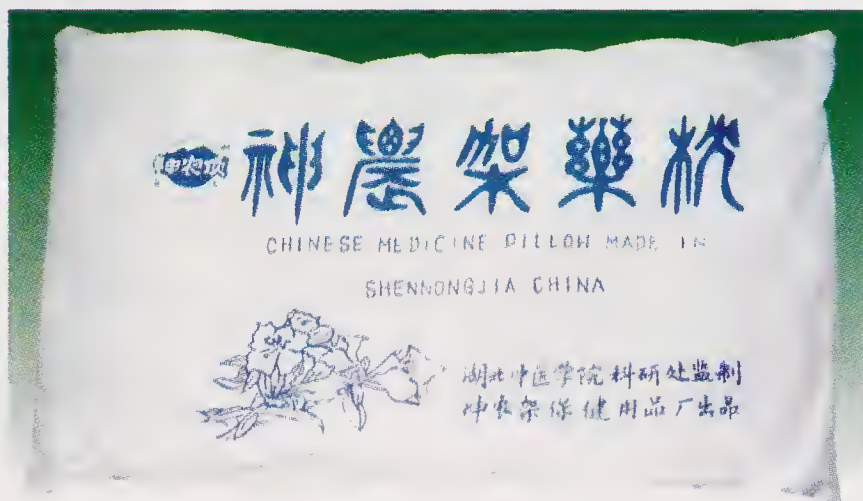 神農架藥枕
CHINESE MEDICINE PILLOW MADE IN
SHENNONGJIA CHINA
湖北中医学院科研处监制
神农架保健用品厂出品